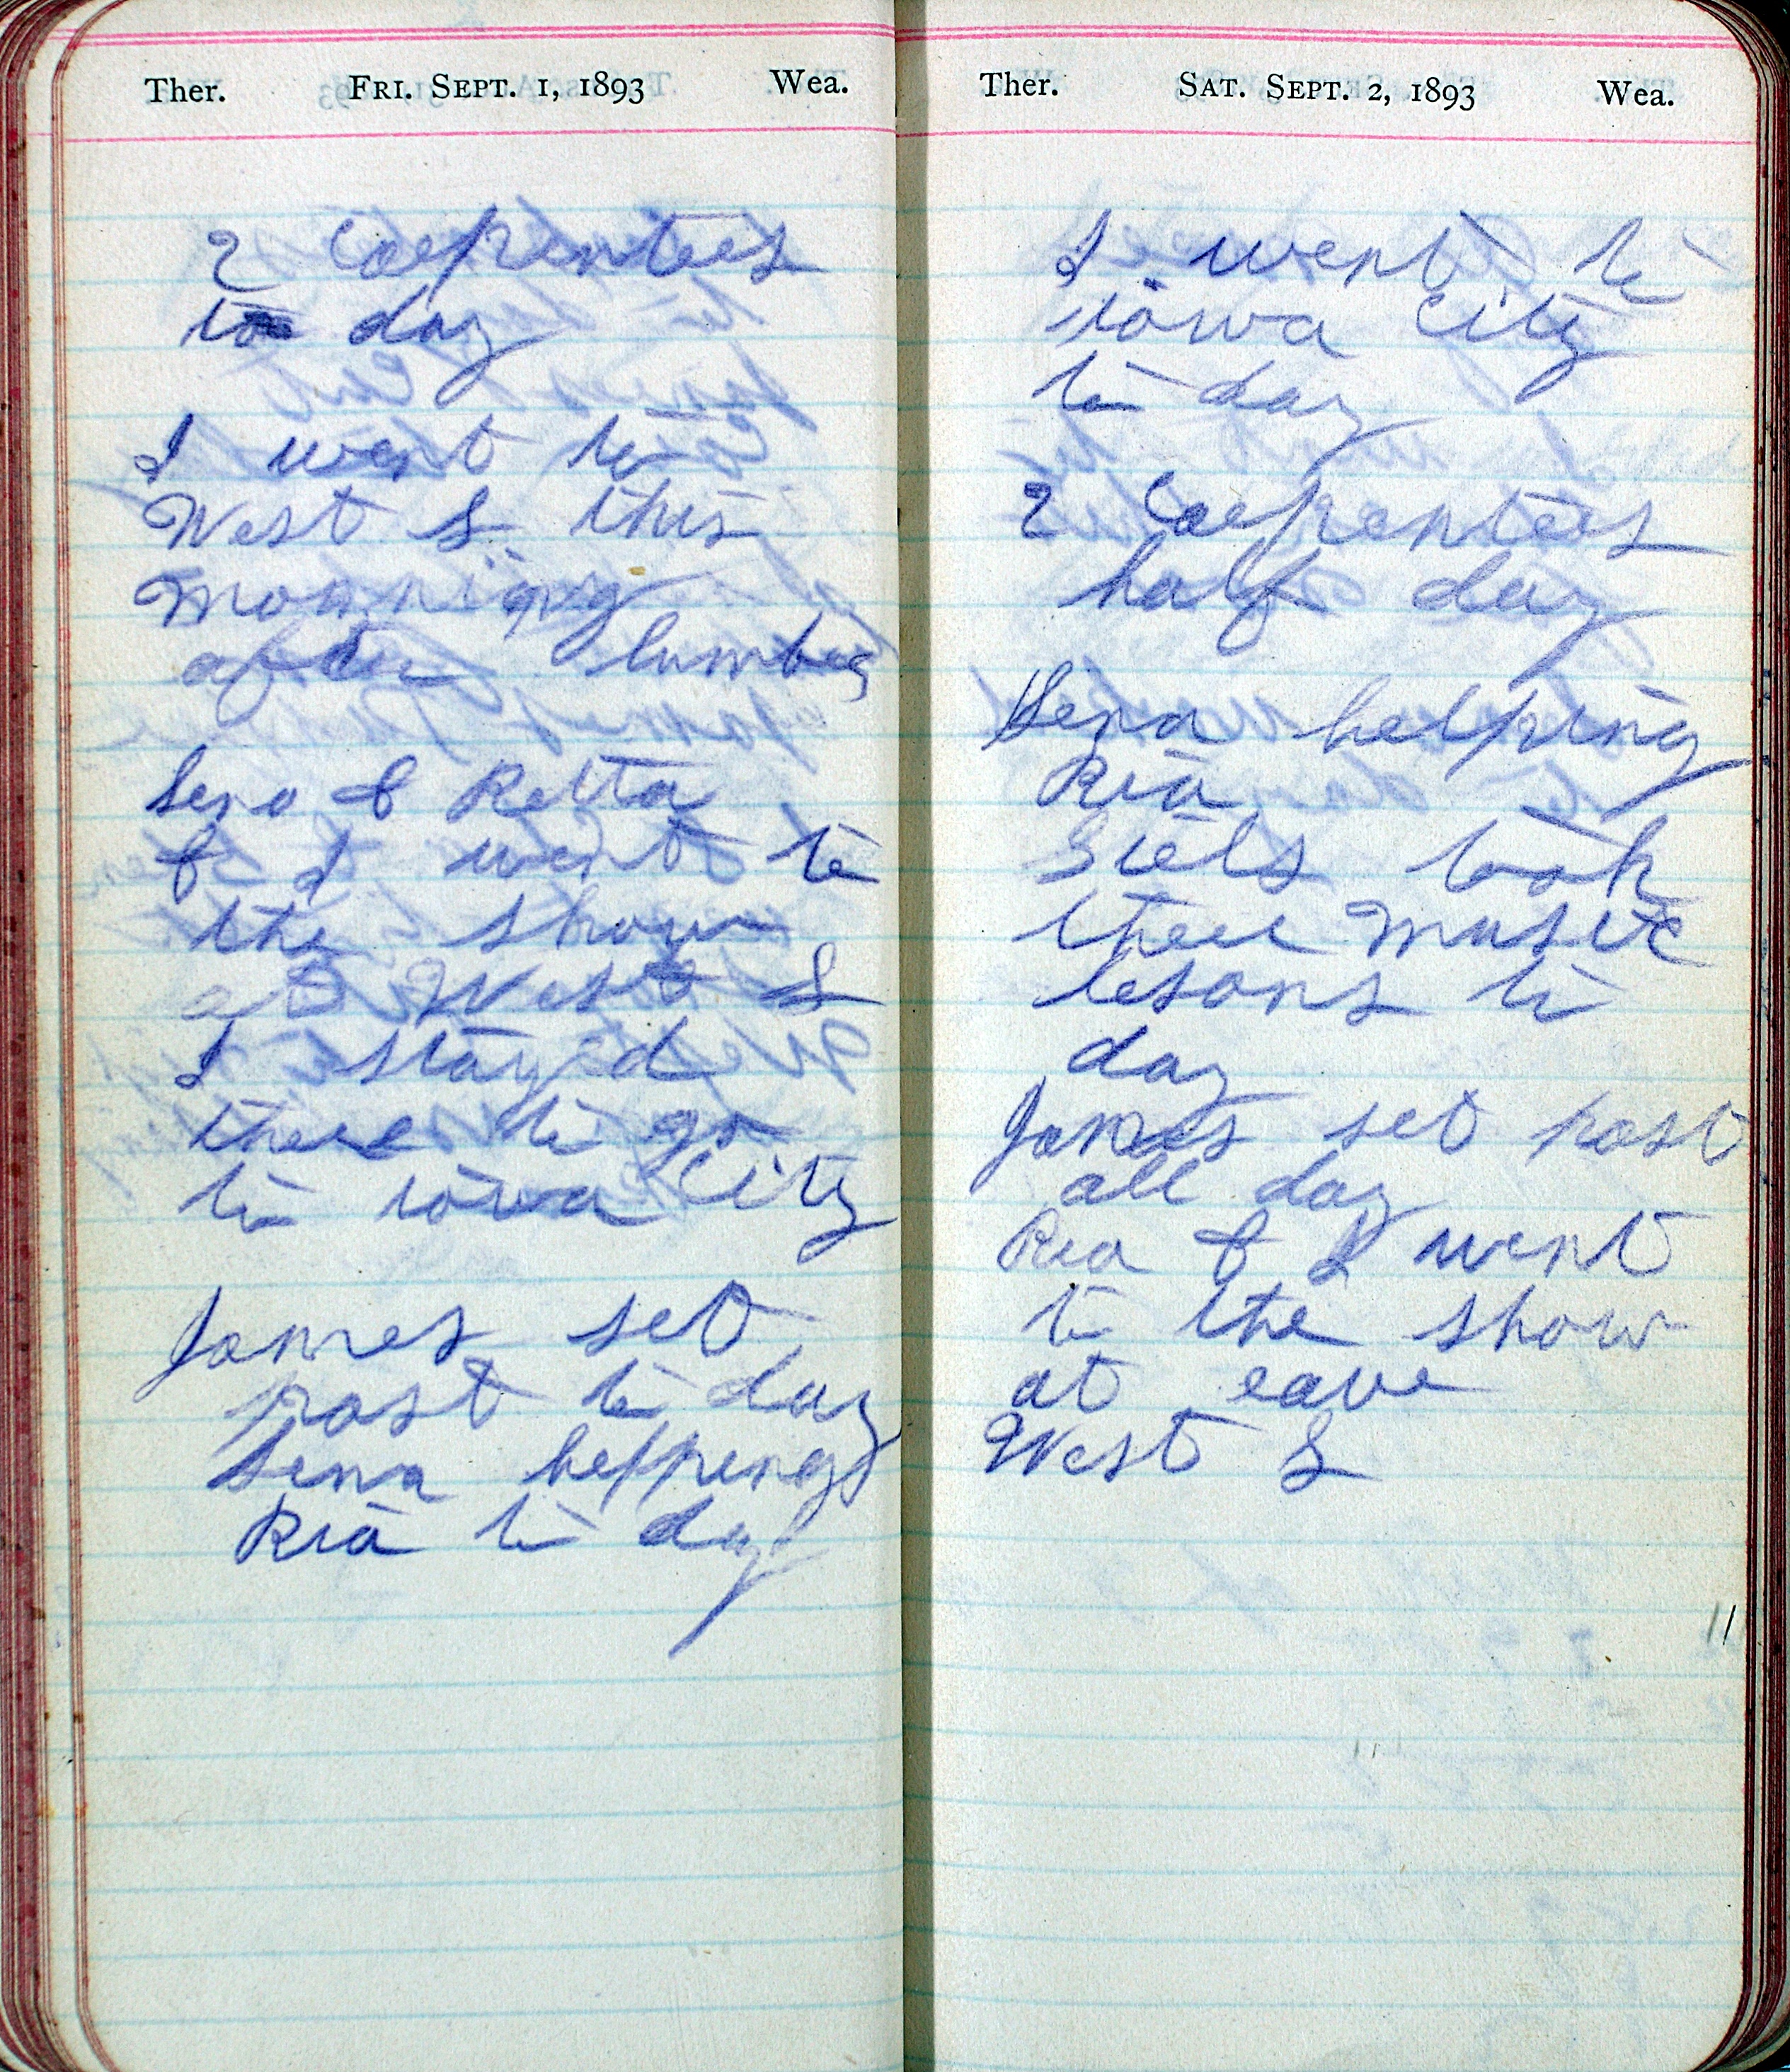 Ther. FRI. SEPT. 1, 1893 Wea.
2 Carpenters
to day
I went to
West L this
morning
after lumber
Lena & Retta
& I went to
the show
at West L
I stayed
there to go
to iowa City
James set
post to day
Lena helping
Ria to day
Ther. SAT. SEPT. 2, 1893 Wea.
I went to
iowa City
to day
2 Carpenters
half day
Lena helping
Ria
Girls took
there music
lesons to
day
James set post
all day
Ria & I went
to the show
at eave
West L